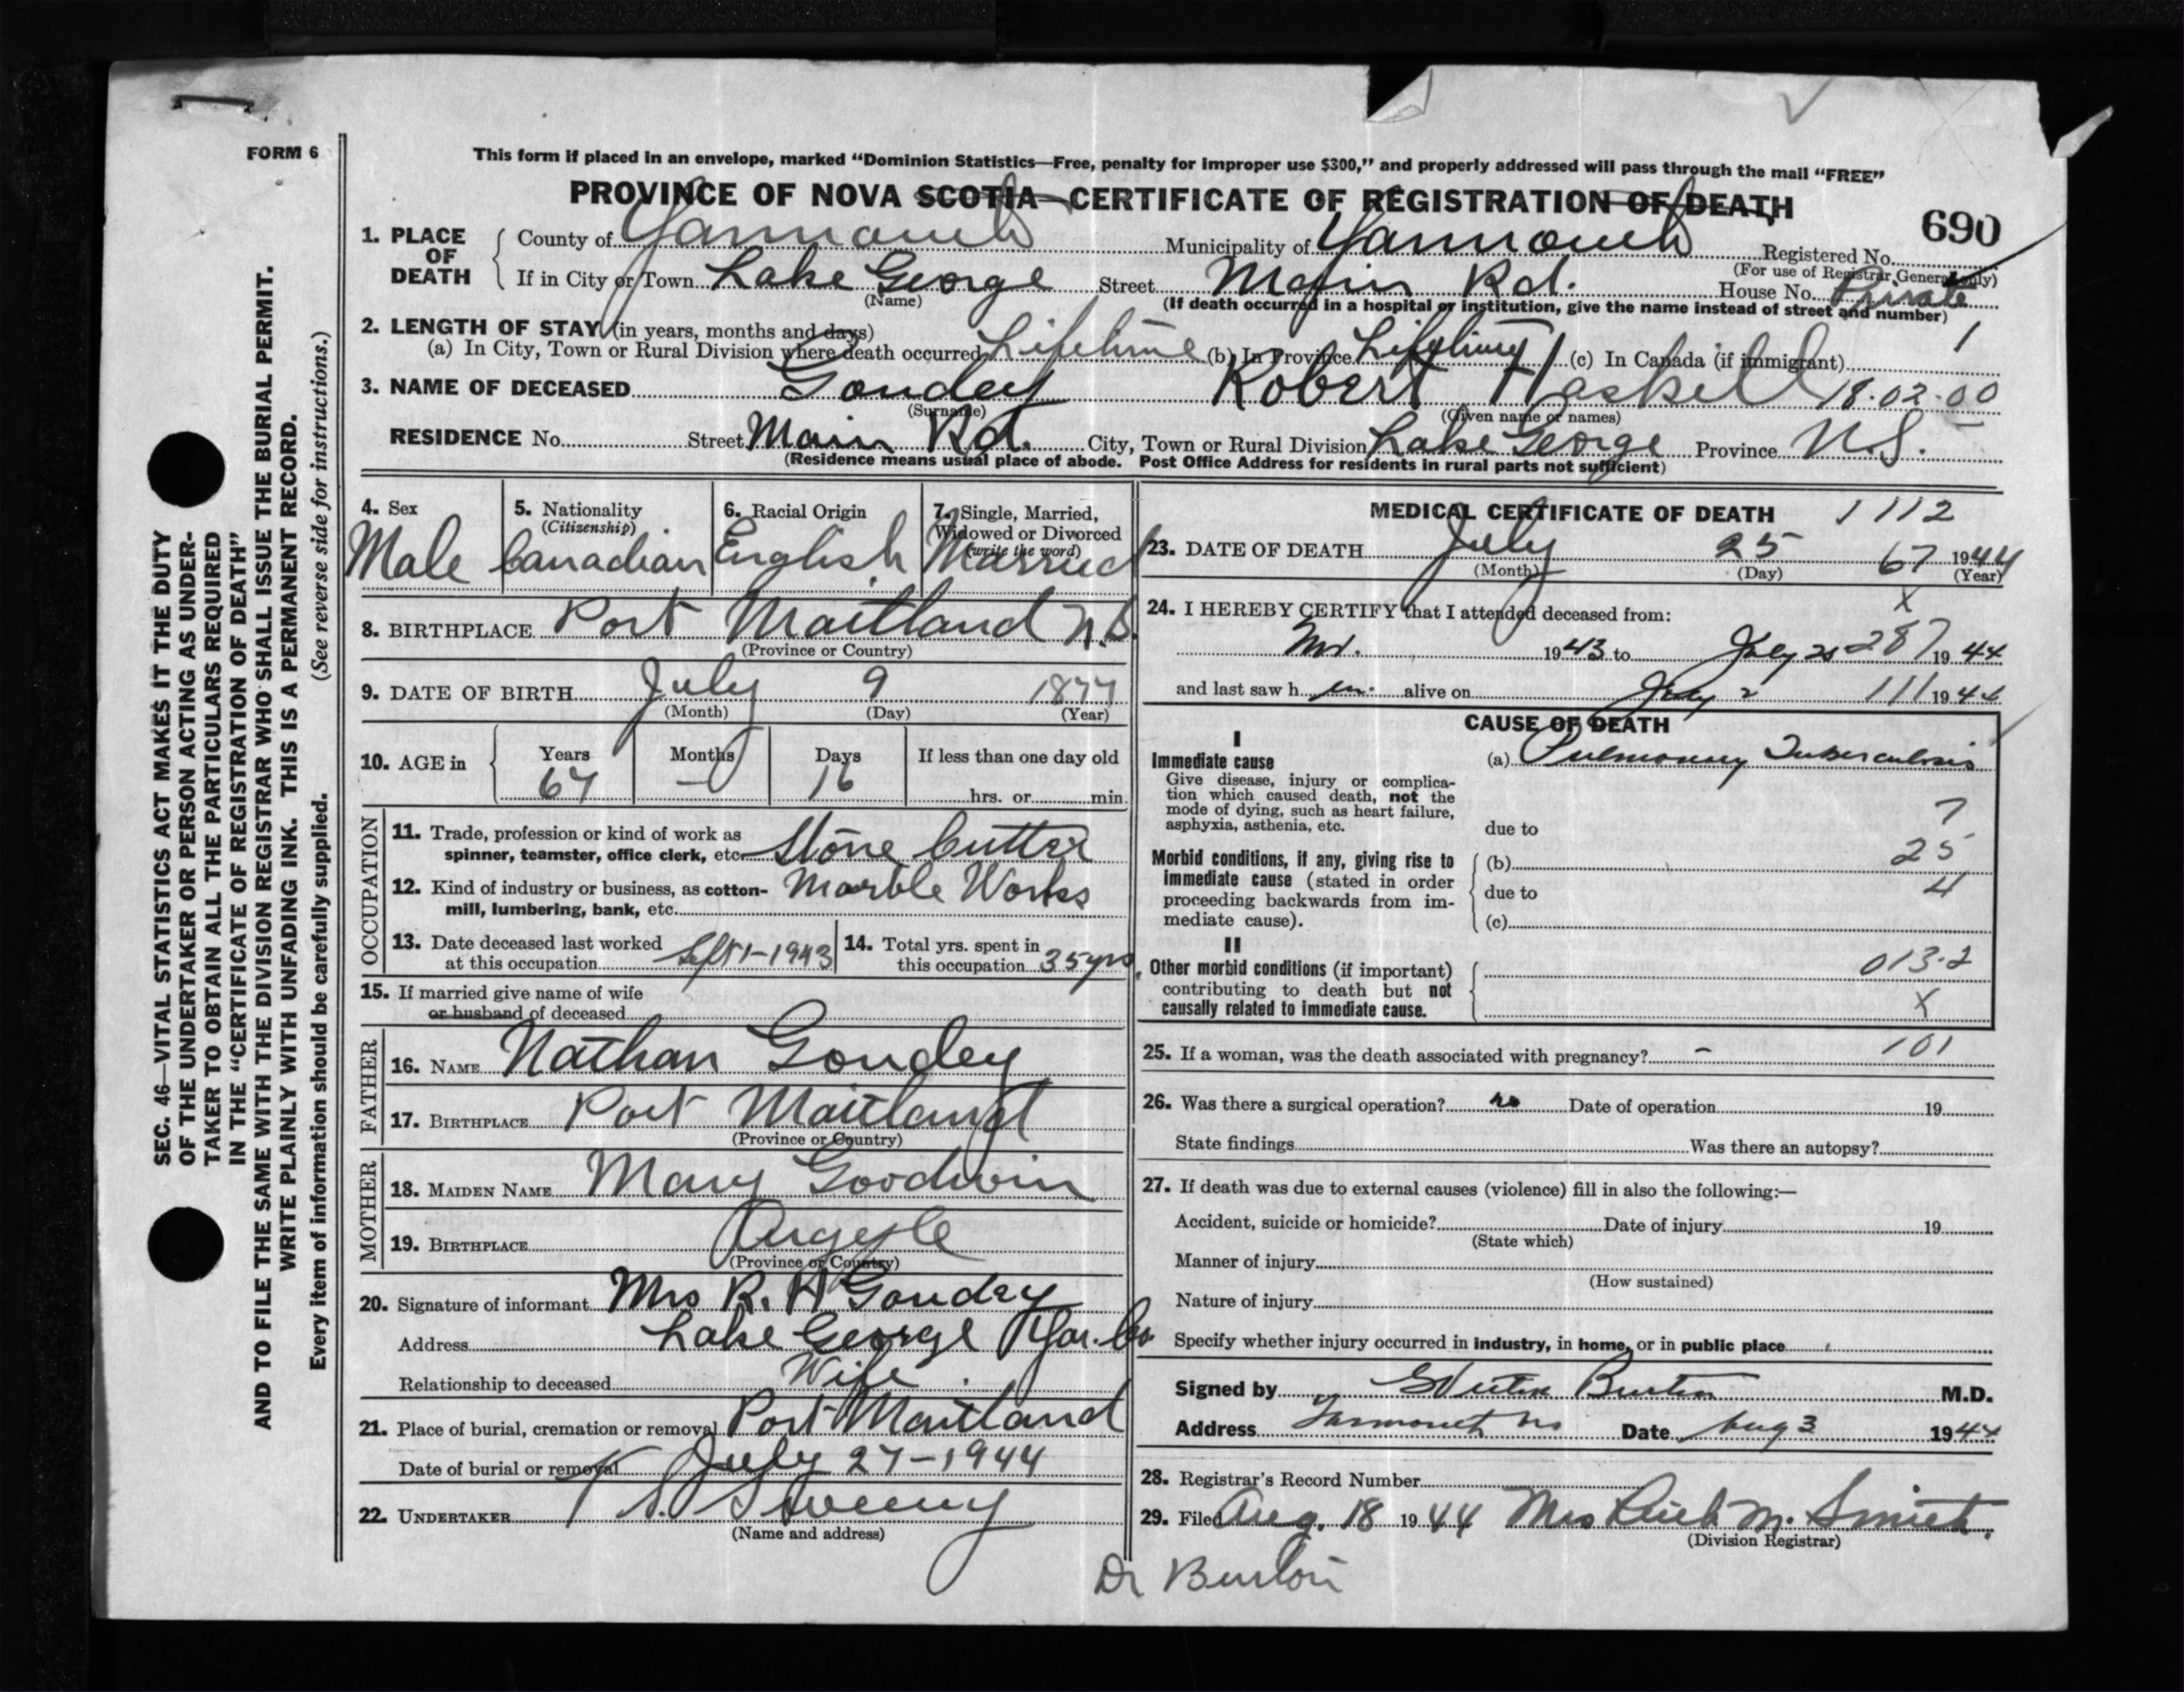 FORM 6
This form if placed in an envelope, marked "Dominion Statistics—Free, penalty for improper use $300," and properly addressed will pass through the mail "FREE"
PROVINCE OF NOVA SCOTIA—CERTIFICATE OF REGISTRATION OF DEATH
690
1. PLACE OF DEATH
County of Yarmouth Municipality of Yarmouth Registered No.
(For use of Registrar General only)
If in City or Town Lake George Street Main Rd. House No. Private
(Name) (If death occurred in a hospital or institution, give the name instead of street and number)
2. LENGTH OF STAY (in years, months and days)
(a) In City, Town or Rural Division where death occurred Lifetime (b) In Province Lifetime (c) In Canada (if immigrant) 1
3. NAME OF DECEASED Goudey Robert Haskell 18·02·00
(Surname) (Given name or names)
RESIDENCE No. Street Main Rd. City, Town or Rural Division Lake George Province N.S.
(Residence means usual place of abode. Post Office Address for residents in rural parts not sufficient)
4. Sex Male
5. Nationality (Citizenship) Canadian
6. Racial Origin English
7. Single, Married, Widowed or Divorced (write the word) Married
8. BIRTHPLACE Port Maitland N.S.
(Province or Country)
9. DATE OF BIRTH July 9 1877
(Month) (Day) (Year)
10. AGE in Years 67 Months — Days 16 If less than one day old hrs. or min.
OCCUPATION
11. Trade, profession or kind of work as spinner, teamster, office clerk, etc. Stone Cutter
12. Kind of industry or business, as cotton-mill, lumbering, bank, etc. Marble Works
13. Date deceased last worked at this occupation Sept 1-1943
14. Total yrs. spent in this occupation 35 yrs.
15. If married give name of wife or husband of deceased
FATHER
16. NAME Nathan Goudey
17. BIRTHPLACE Port Maitland
(Province or Country)
MOTHER
18. MAIDEN NAME Mary Goodwin
19. BIRTHPLACE Argyle
(Province or Country)
20. Signature of informant Mrs R. H Goudey
Address Lake George Yar. Co
Relationship to deceased Wife
21. Place of burial, cremation or removal Port Maitland
Date of burial or removal July 27-1944
22. UNDERTAKER Sweeny
(Name and address)
MEDICAL CERTIFICATE OF DEATH 1112
23. DATE OF DEATH July 25 67 1944
(Month) (Day) (Year)
24. I HEREBY CERTIFY that I attended deceased from: X
1943 to July 25 287 1944
and last saw h im alive on July 2 111 1944
CAUSE OF DEATH
I
Immediate cause
Give disease, injury or complication which caused death, not the mode of dying, such as heart failure, asphyxia, asthenia, etc.
(a) Pulmonary Tuberculosis
7
due to
Morbid conditions, if any, giving rise to immediate cause (stated in order proceeding backwards from immediate cause).
(b) 25
due to 4
(c)
II
Other morbid conditions (if important) contributing to death but not causally related to immediate cause.
013·2
X
25. If a woman, was the death associated with pregnancy? – 101
26. Was there a surgical operation? no Date of operation 19
State findings Was there an autopsy?
27. If death was due to external causes (violence) fill in also the following:—
Accident, suicide or homicide? Date of injury 19
(State which)
Manner of injury
(How sustained)
Nature of injury
Specify whether injury occurred in industry, in home, or in public place
Signed by Burton M.D.
Address Yarmouth NS Date Aug 3 1944
28. Registrar's Record Number
29. Filed Aug. 18 1944 Mrs M. Smith.
(Division Registrar)
Dr Burton
SEC. 46—VITAL STATISTICS ACT MAKES IT THE DUTY
OF THE UNDERTAKER OR PERSON ACTING AS UNDER-
TAKER TO OBTAIN ALL THE PARTICULARS REQUIRED
IN THE "CERTIFICATE OF REGISTRATION OF DEATH"
AND TO FILE THE SAME WITH THE DIVISION REGISTRAR WHO SHALL ISSUE THE BURIAL PERMIT.
WRITE PLAINLY WITH UNFADING INK. THIS IS A PERMANENT RECORD.
Every item of information should be carefully supplied. (See reverse side for instructions.)